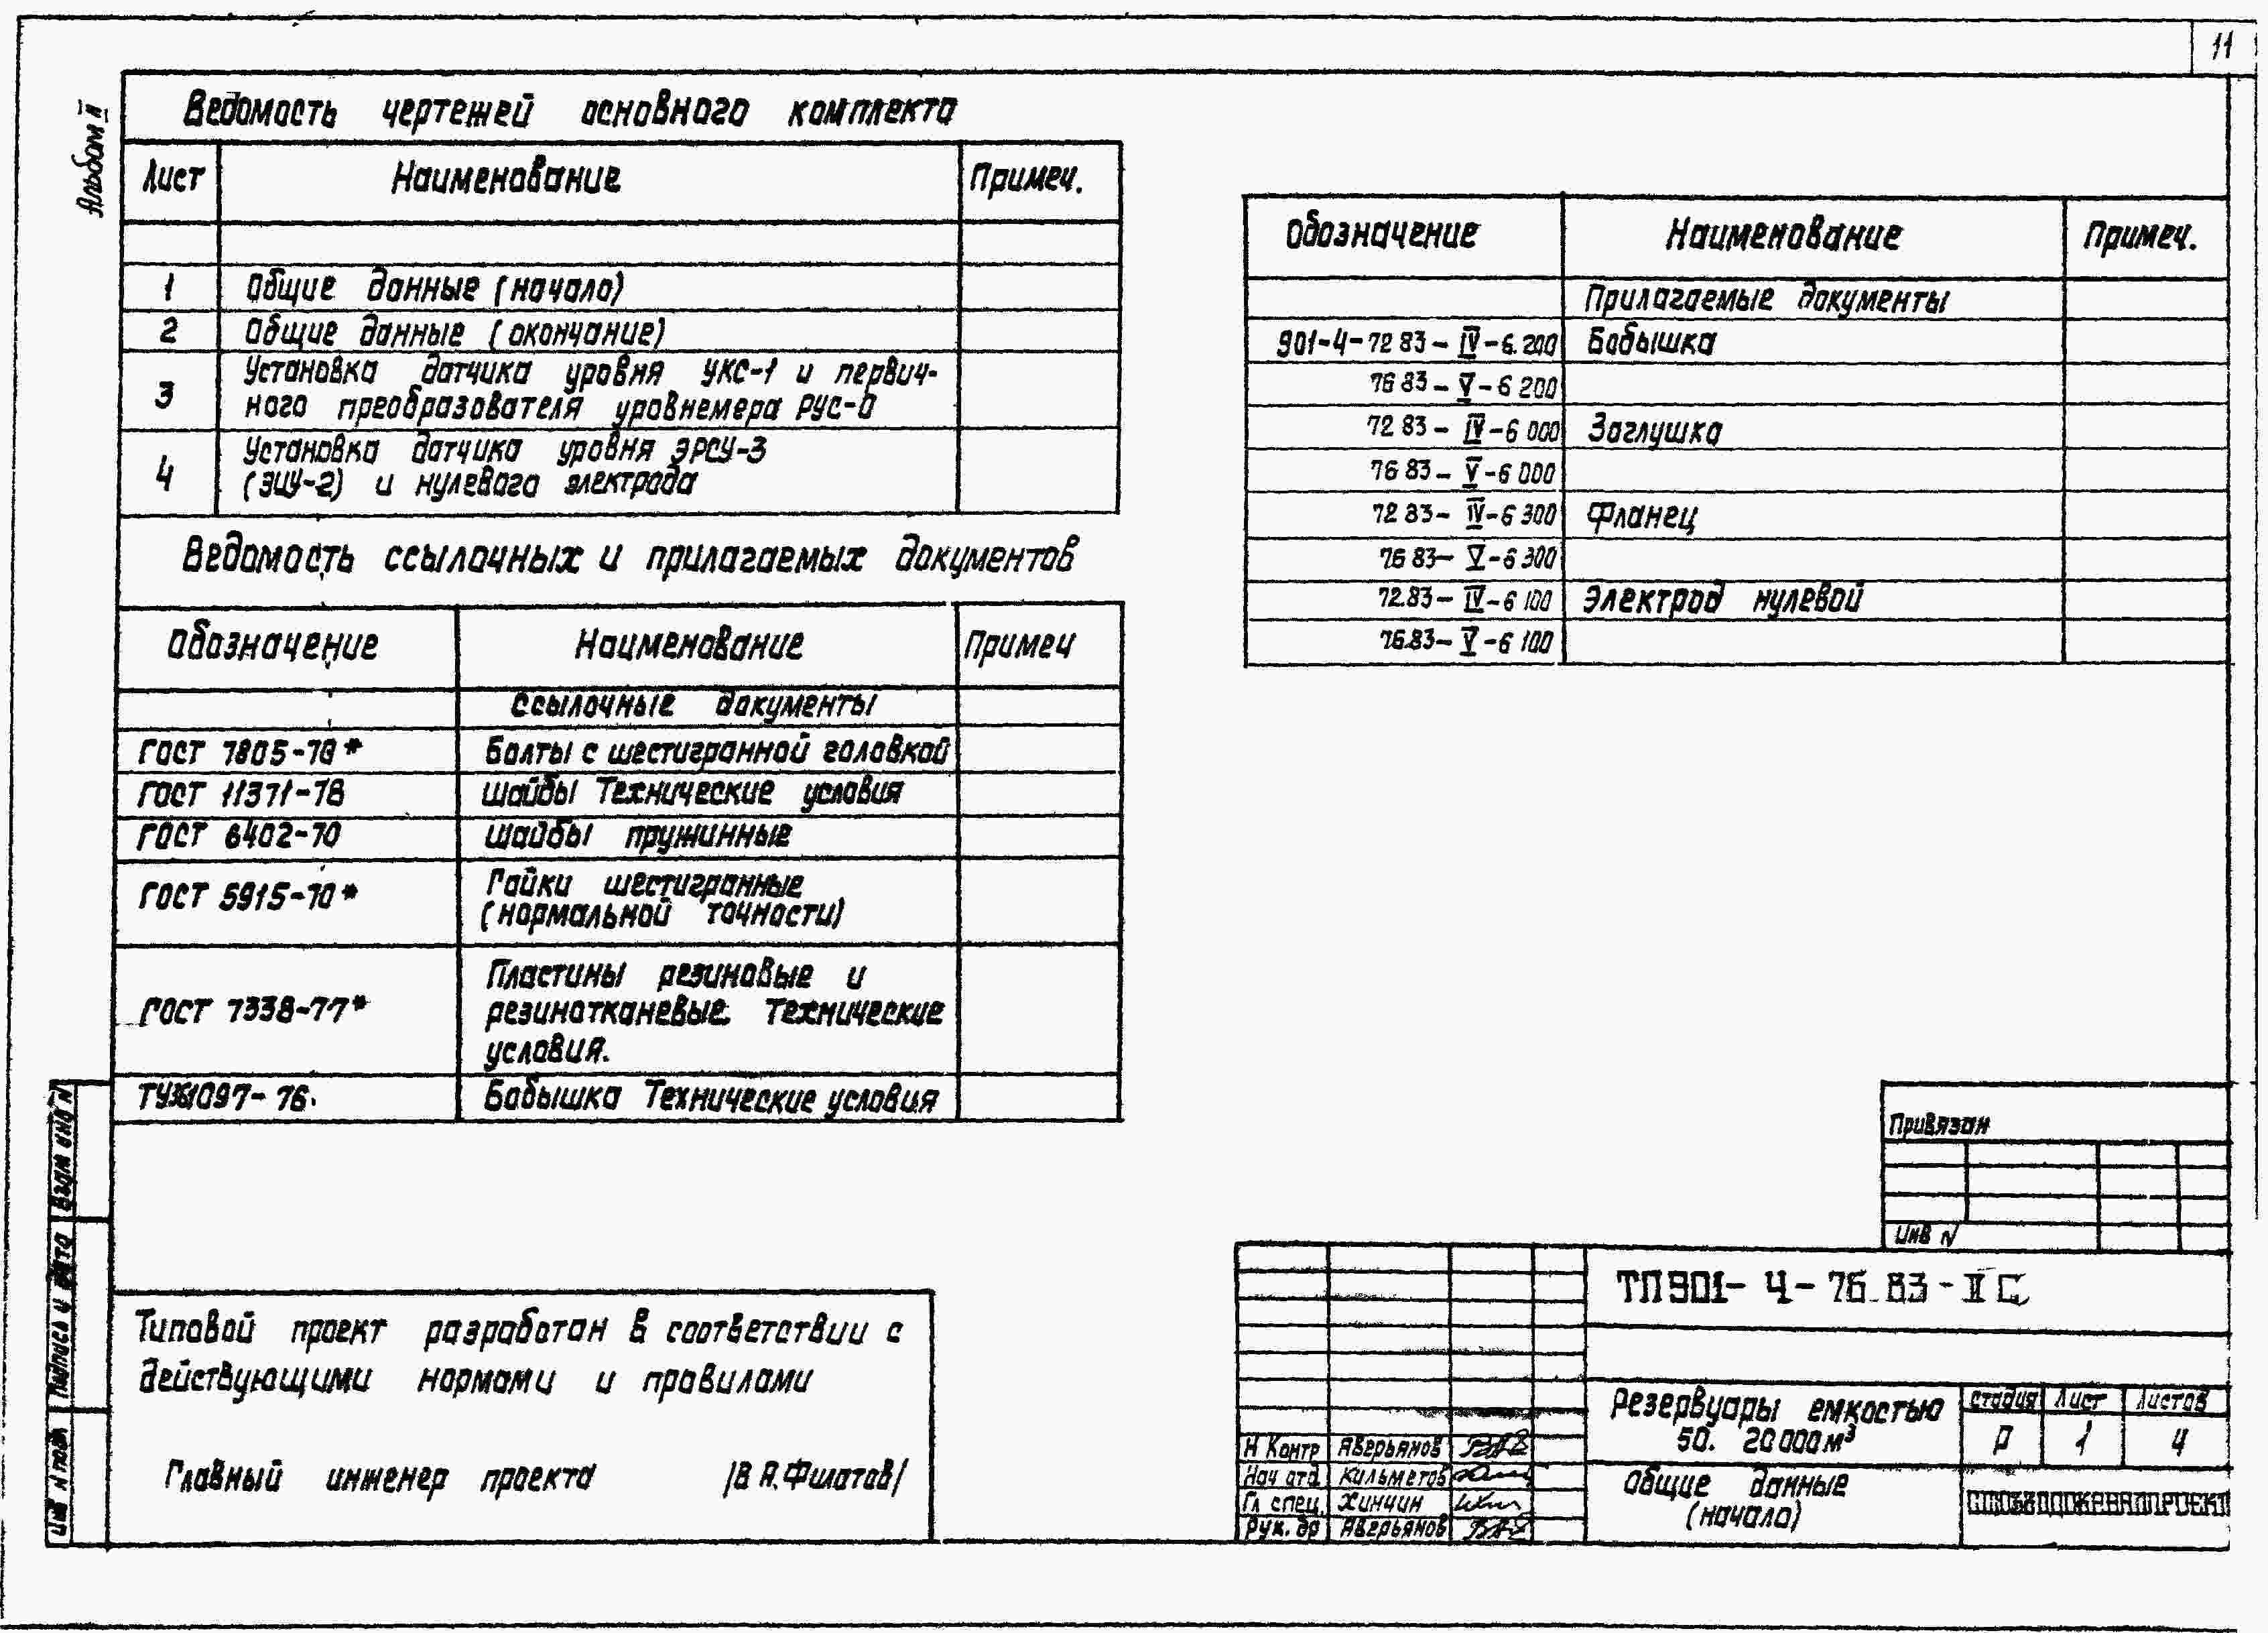 11
Альбом II
Ведомость чертежей основного комплекта
Лист Наименование Примеч.
1 Общие данные (начало)
2 Общие данные (окончание)
3 Установка датчика уровня УКС-1 и первич-
ного преобразователя уровнемера РУС-0
4 Установка датчика уровня ЭРСУ-3
(ЭИУ-2) и нулевого электрода
Ведомость ссылочных и прилагаемых документов
Обозначение Наименование Примеч
Ссылочные документы
ГОСТ 7805-70* Болты с шестигранной головкой
ГОСТ 11371-78 Шайбы Технические условия
ГОСТ 6402-70 Шайбы пружинные
ГОСТ 5915-70* Гайки шестигранные
(нормальной точности)
ГОСТ 7338-77* Пластины резиновые и
резинотканевые. Технические
условия.
1097-76. Бобышка Технические условия
Обозначение Наименование Примеч.
Прилагаемые документы
901-4-72 83-IV-6.200 Бобышка
76 83-V-6 200
72 83-IV-6 000 Заглушка
76 83-V-6 000
72 83-IV-6 300 Фланец
76 83-V-6 300
72.83-IV-6 100 Электрод нулевой
76.83-V-6 100
Типовой проект разработан в соответствии с
действующими нормами и правилами
Главный инженер проекта /В А.Филатов/
Взам инв N
Подпись и дата
Инв N подл
Привязан
Инв N
ТП 901-4-76.83-II С
Резервуары емкостью
50. 20000м³
Стадия Лист Листов
Р 1 4
Н Контр Аверьянов
Нач отд. Кильметов
Гл спец. Хинчин
Рук. гр Аверьянов
Общие данные
(начало)
СОЮЗВОДОКАНАЛПРОЕКТ